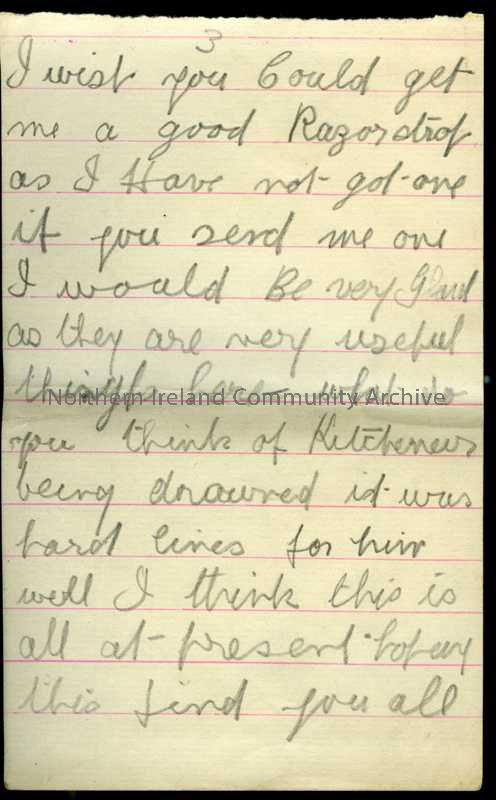 3
I wish you Could get
me a good Razorstrop
as I Have not got one
if you send me one
I would Be very Glad
as they are very useful
things here what do
Northern Ireland Community Archive
you think of Kitcheners
being drawned it was
hard lines for him
well I think this is
all at present hoping
this find you all